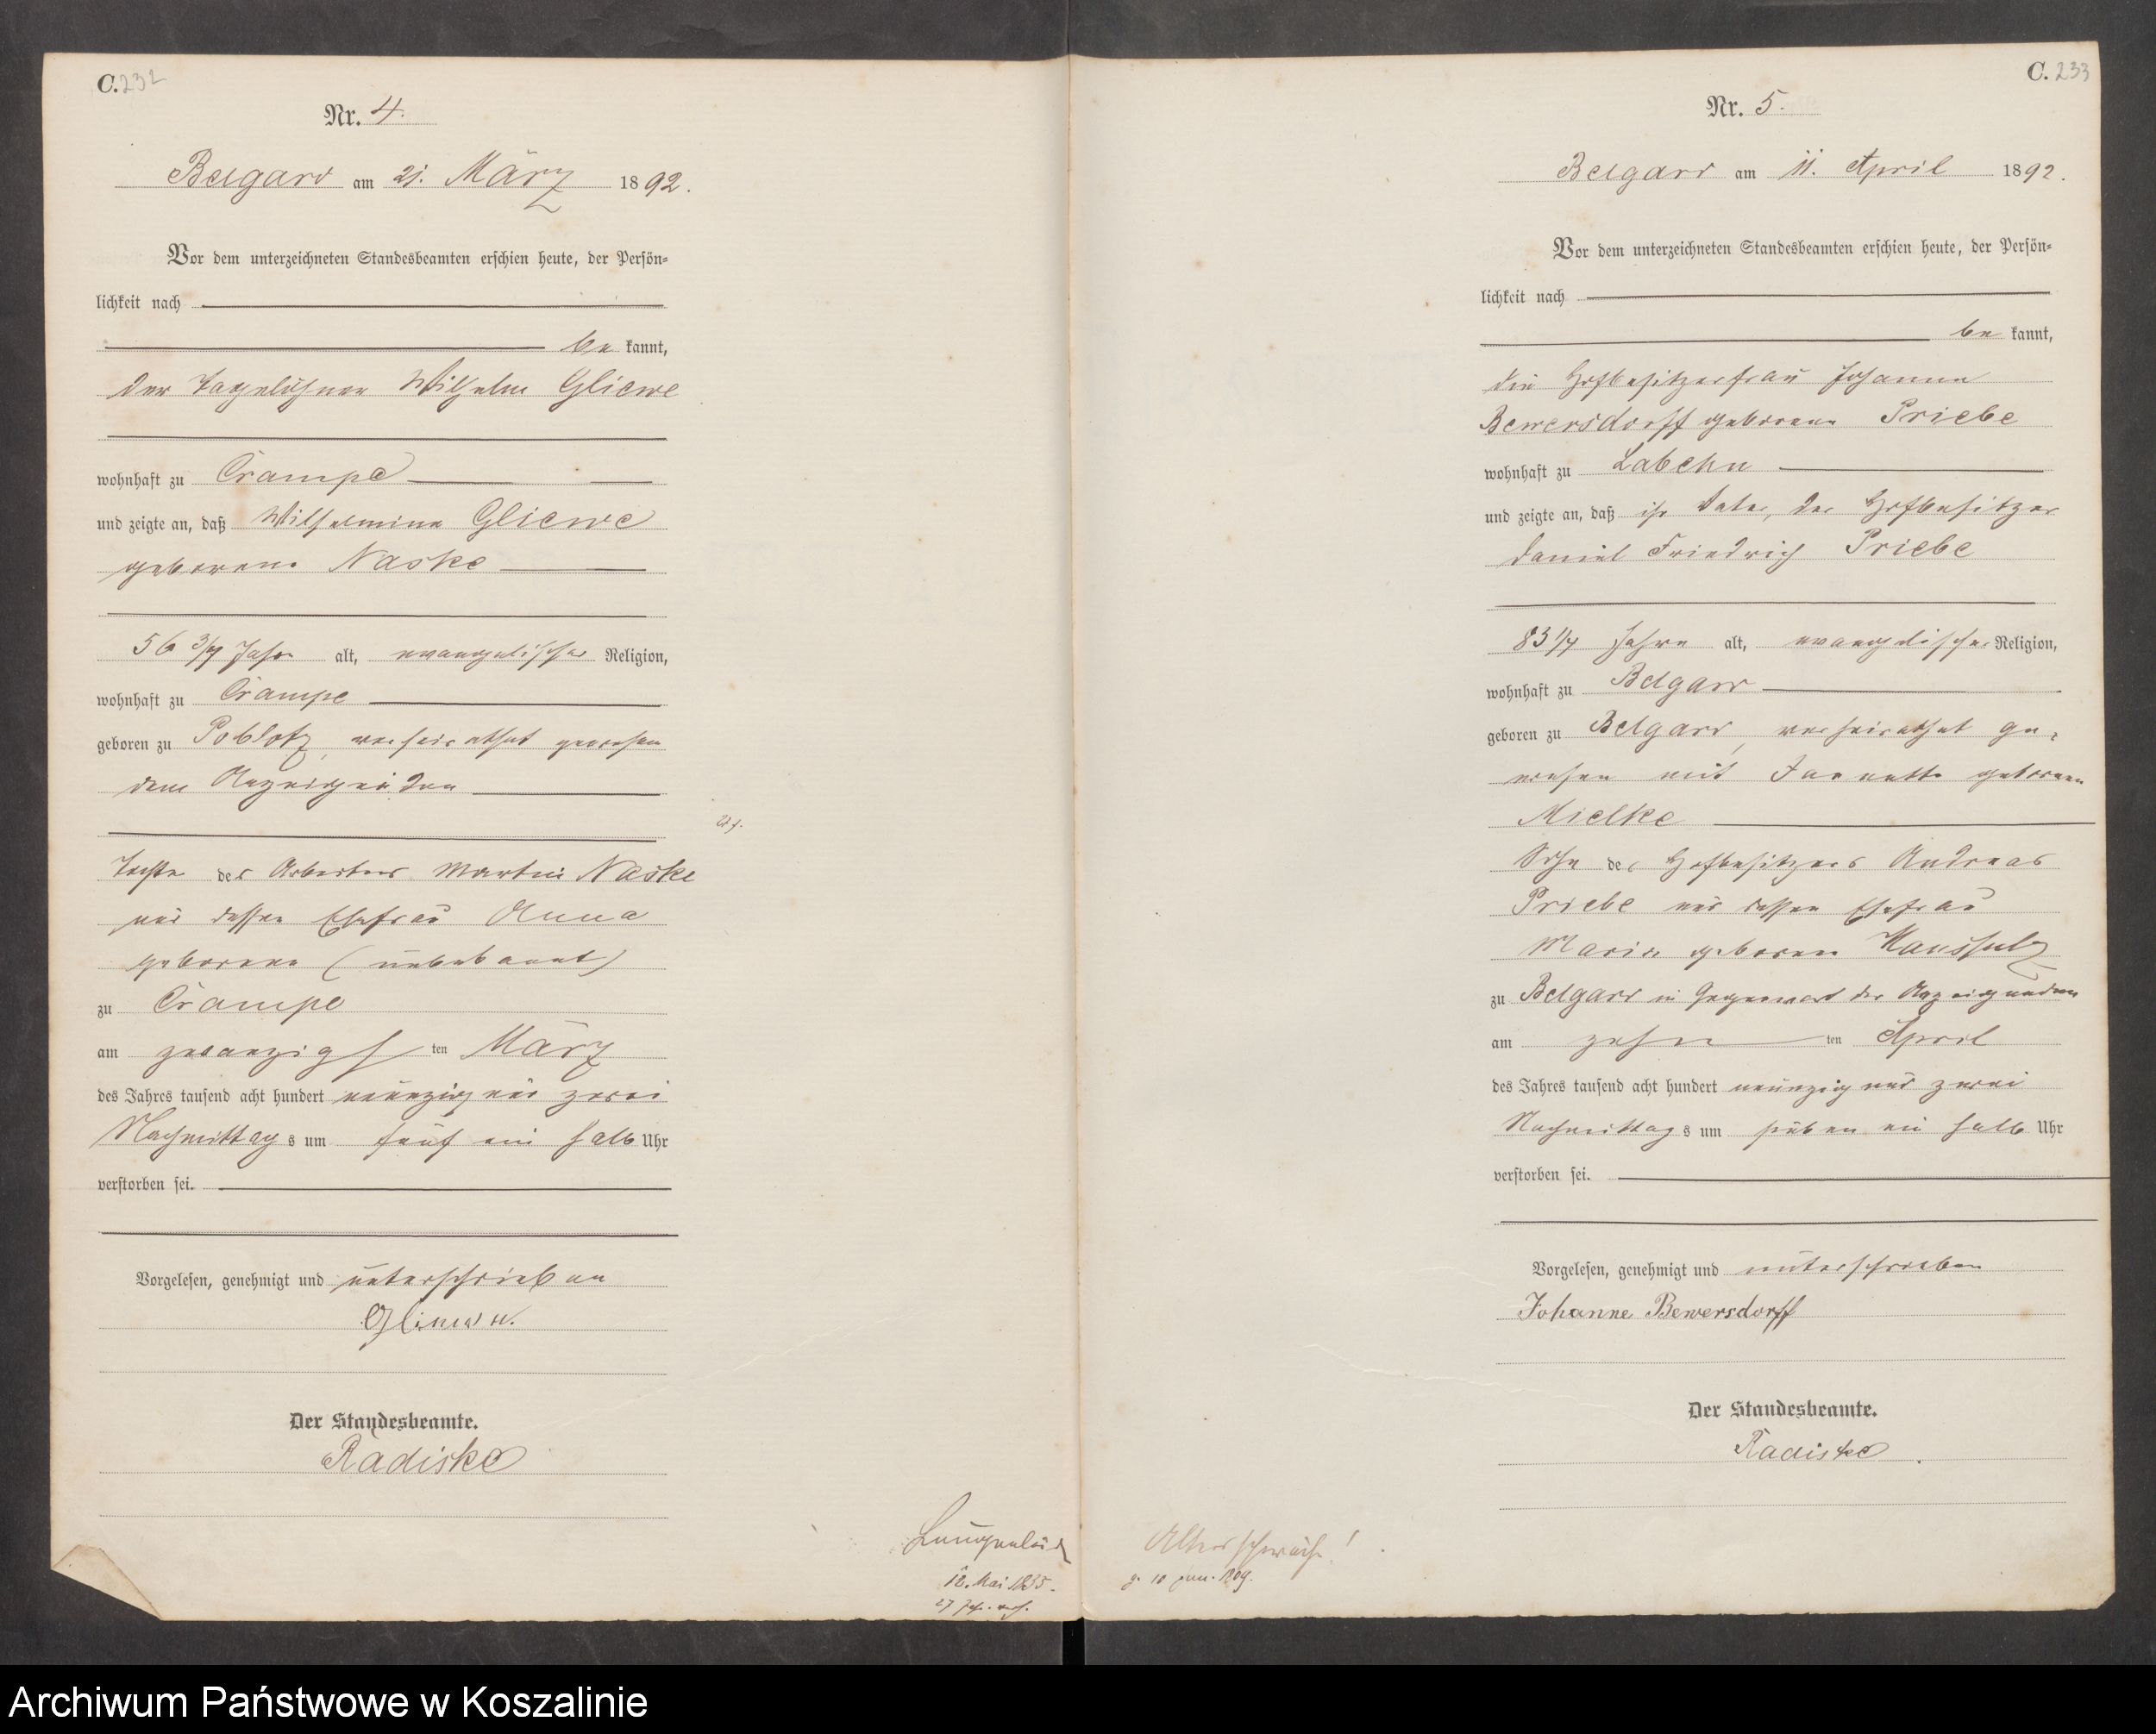 C. 232
Nr. 4.
Belgard am 21. März 1892.
Vor dem unterzeichneten Standesbeamten erschien heute, der Persön-
lichkeit nach
be kannt,
der Tagelöhner Wilhelm Gliewe
wohnhaft zu Crampe
und zeigte an, daß Wilhelmine Gliewe
geborene Naske
56 3/4 Jahr alt, evangelischer Religion,
wohnhaft zu Crampe
geboren zu Poblotz, verheirathet gewesen
dem Anzeigenden
Tochter des Arbeiters Martin Naske
und dessen Ehefrau Anna
geborene (unbekannt)
zu Crampe
am zwanzigsten März
des Jahres tausend acht hundert neunzig und zwei
Nachmittags um fünf ein halb Uhr
verstorben sei.
Vorgelesen, genehmigt und unterschrieben
Gliewe.
Der Standesbeamte.
Radiske
12. Mai 1835.
27
C. 233
Nr. 5.
Belgard am 11. April 1892.
Vor dem unterzeichneten Standesbeamten erschien heute, der Persön-
lichkeit nach
be kannt,
die Hofbesitzerfrau Johanne
Bewersdorff geborene Priebe
wohnhaft zu Labehn
und zeigte an, daß ihr Vater, der Hofbesitzer
Daniel Friedrich Priebe
83 1/4 Jahre alt, evangelischer Religion,
wohnhaft zu Belgard
geboren zu Belgard, verheirathet ge-
wesen mit geborene
Mielke
Sohn des Hofbesitzers Andreas
Priebe und dessen Ehefrau
Marie geborene
zu Belgard in Gegenwart der Anzeigenden
am zehnten April
des Jahres tausend acht hundert neunzig und zwei
Nachmittags um sieben ein halb Uhr
verstorben sei.
Vorgelesen, genehmigt und unterschrieben
Johanne Bewersdorff
Der Standesbeamte.
Radiske.
Altersschwäche!
g. 10 Jan. 1809.
Archiwum Państwowe w Koszalinie